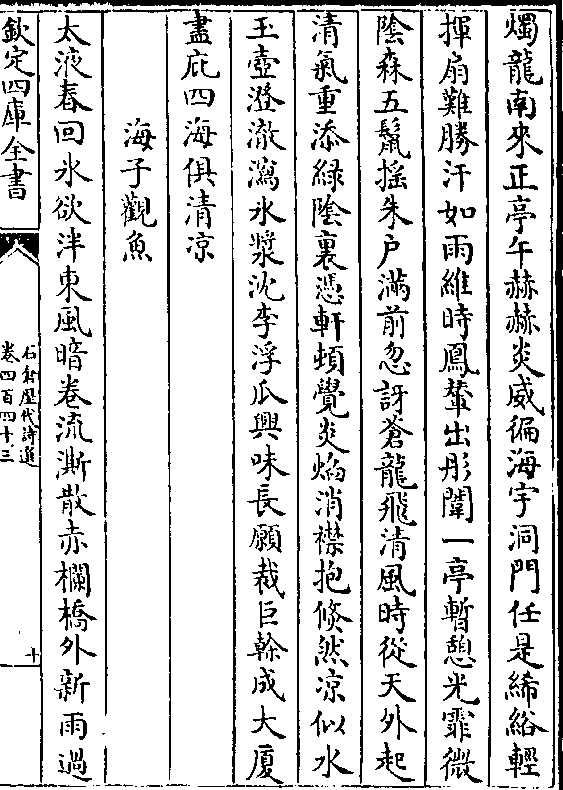 燭龍南來正亭午赫赫炎威徧海宇洞門任是絺綌輕
揮扇難勝汗如雨維時鳳輦出彤闈一亭暫憩光霏微
陰森五鬣搖朱户滿前忽訝蒼龍飛清風時從天外起
清氣重添緑陰裏憑軒頓覺炎焰消襟抱倐然凉似水
玉壺澄澈瀉氷漿沈李浮瓜興味長願裁巨榦成大厦
盡庇四海俱清凉
海子觀魚
太液春回氷欲泮東風暗卷流澌散赤欄橋外新雨過
欽定四庫全書
石倉歷代詩選
卷四百四十三
十